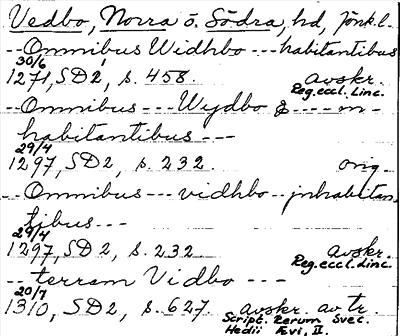 Vedbo, Norra o. Södra, hd, Jönk.l.
--Omnibus Widhbo --- habitantibus
30/6
1271, SD 2, s. 458. avskr.
Reg. eccl. Linc.
--Omnibus --- Wydbo ---- in-
habitantibus ---
29/4
1297, SD 2, s. 232. orig.
--Omnibus --- vidhbo -- jnhabitan-
tibus ---
29/4
1297, SD 2, s. 232 avskr.
Reg. eccl. Linc.
-- terram Vidbo ---
20/7
1310, SD 2, s. 627. avskr. av tr.
Script. Rerum Svec.
Hedii Ævi, II.